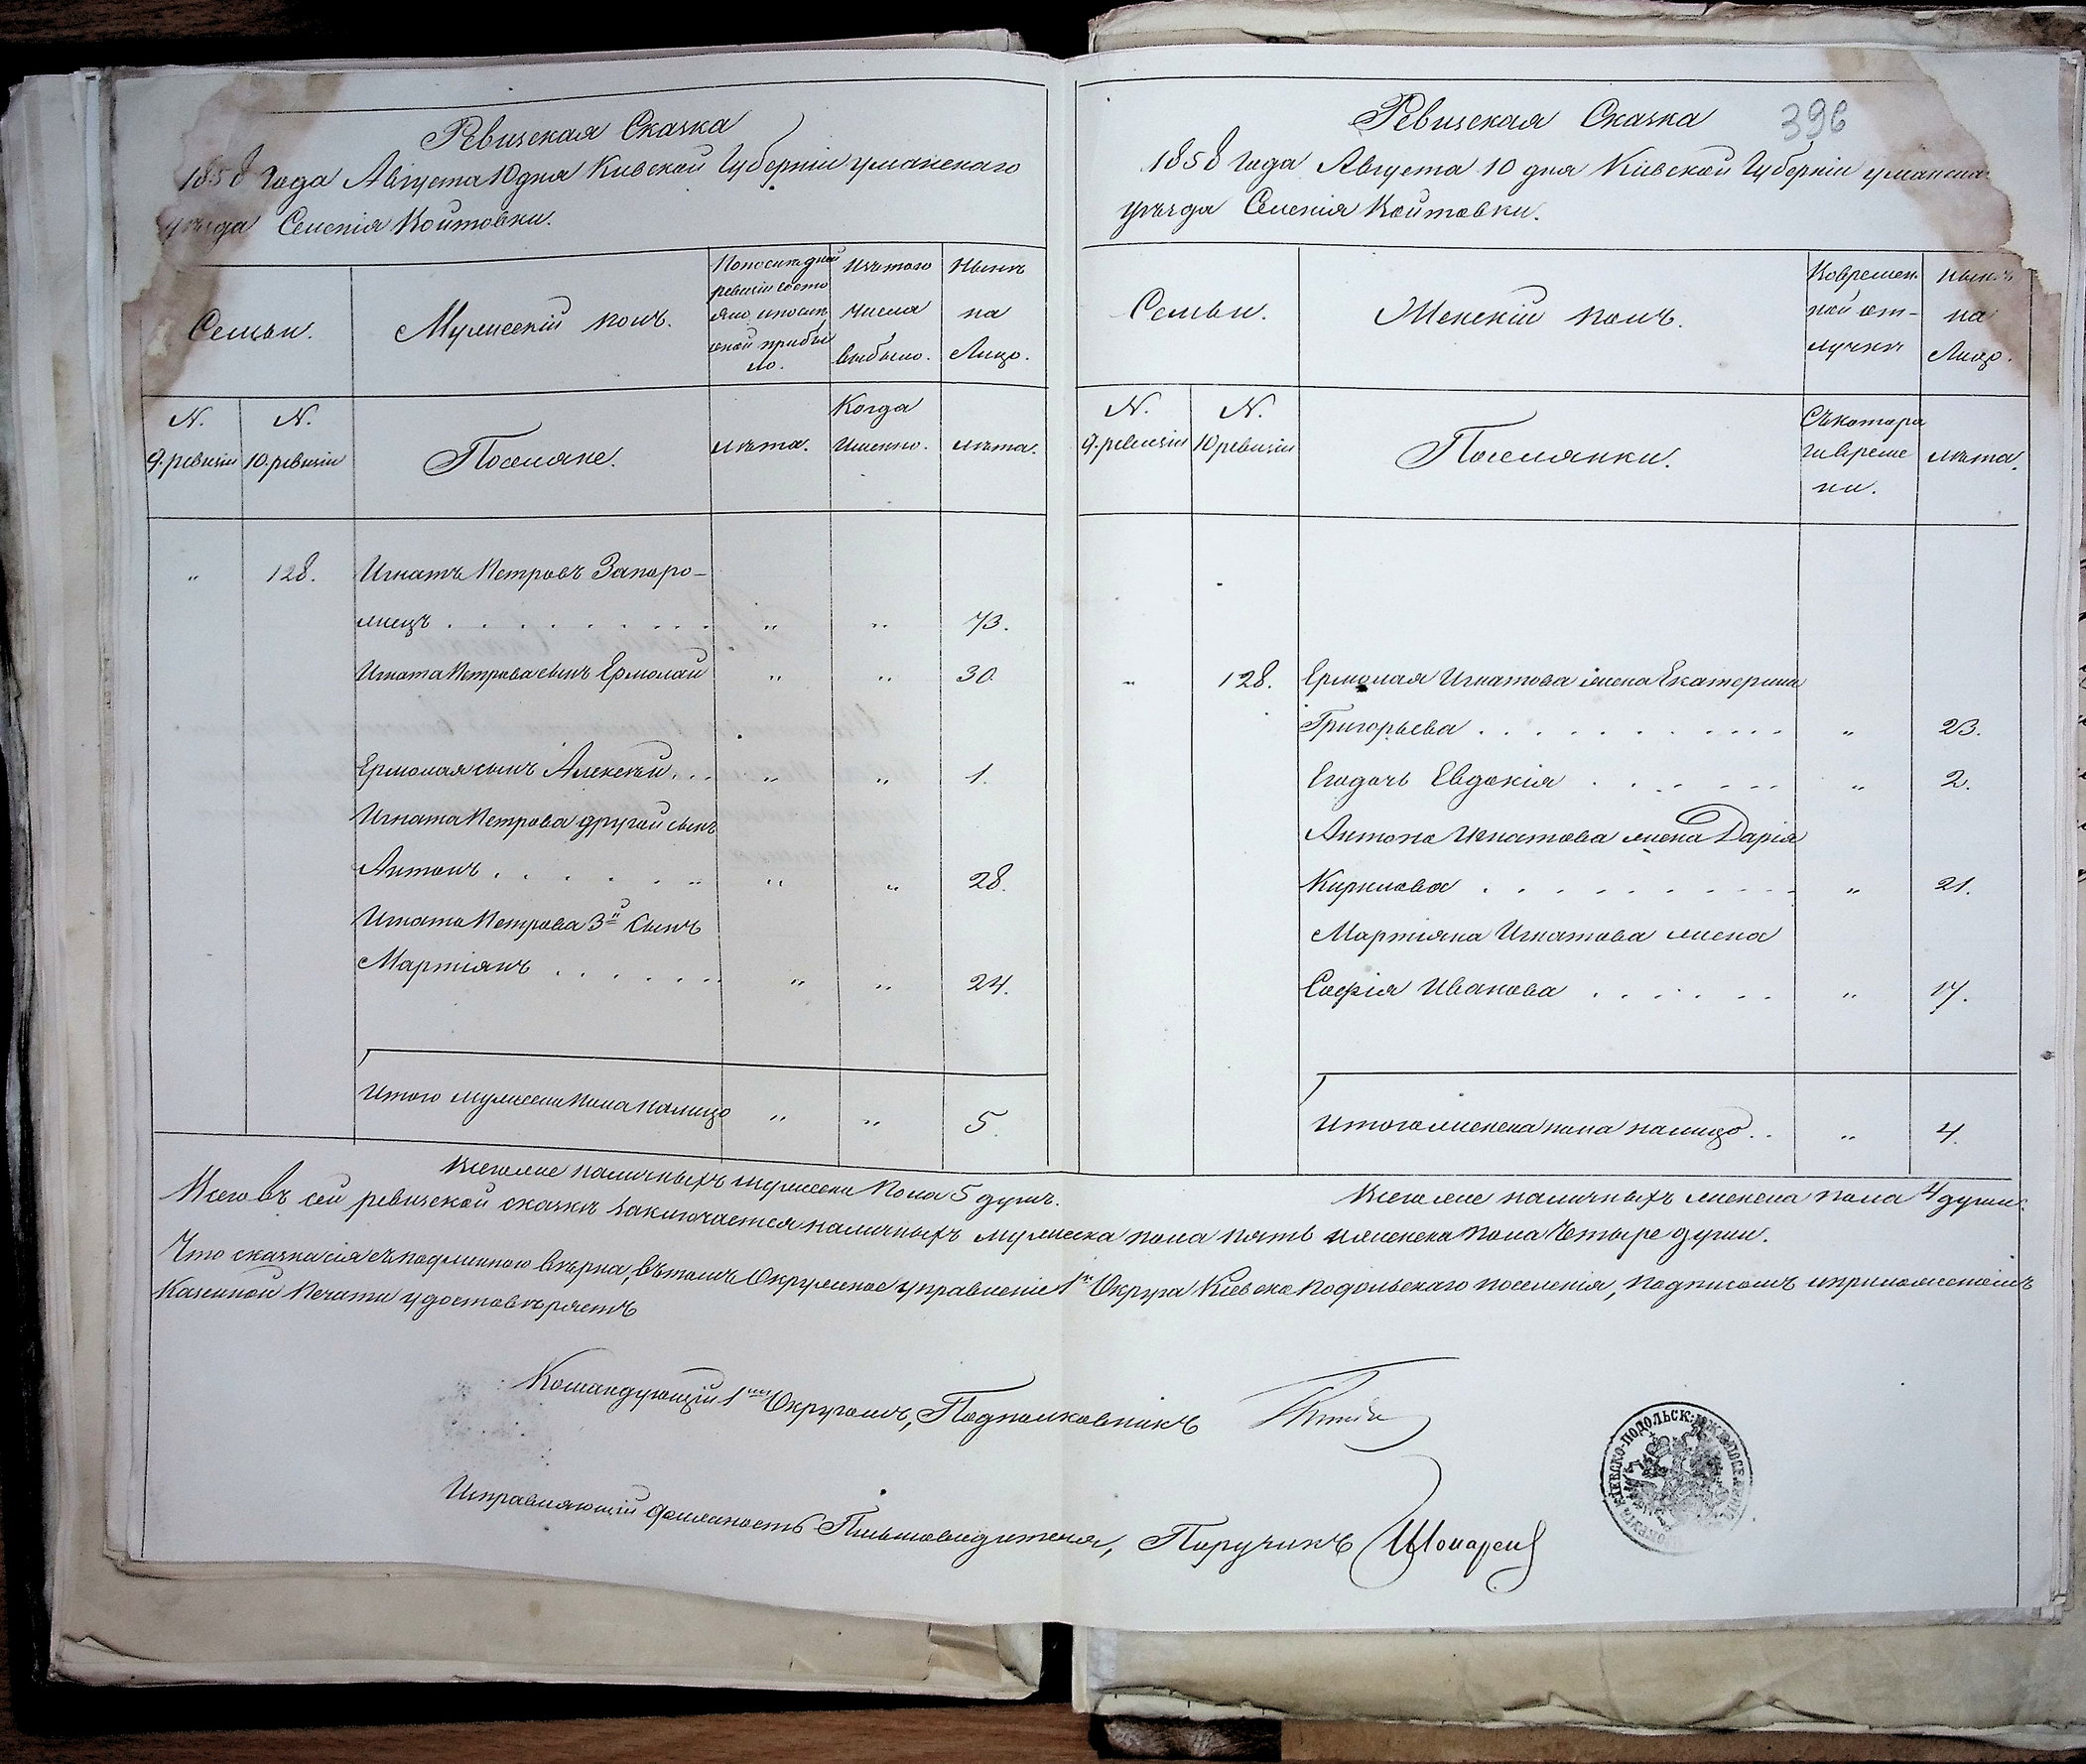 Ревизская Сказка
1858 Года Августа 10 дня Киевской Губерніи Уманскаго
уѣзда Селенія Койтовки.
Семьи.
Мужескій полъ.
По последней ревизіи состояло и после оной прибыло.
Изъ того числа выбыло.
Нынѣ на Лицо.
N. 9. ревизіи
N. 10. ревизіи
Поселяне.
лѣта.
Когда именно.
лѣта.
„ 128. Игнатъ Петровъ Запоро-
жецъ . . . . . . . . . „ „ 73.
Игната Петрова сынъ Ермолай „ „ 30
Ермолая сынъ Алексѣй. . . „ „ 1.
Игната Петрова другой сынъ
Антонъ . . . . . . „ „ 28.
Игната Петрова 3й Сынъ
Мартіянъ . . . . . . „ „ 24.
Итого мужеска пола налицо „ „ 5.
Всего же наличныхъ мужеска пола 5 душъ.
Ревизская Сказка 396
1858 Года Августа 10 дня Кіевской Губерніи Уманска
уѣзда Селенія Койтовки.
Семьи.
Женскій полъ.
Во временной отлучкѣ
нынѣ на Лицо.
N. 9. ревизіи
N. 10 ревизіи
Поселянки.
Съ котора го време ни.
лѣта.
„ 128. Ермолая Игнатова жена Екатерина
Григорьева . . . . . . . . . . „ 23.
Егодочь Евдокія . . . . . . „ 2.
Антона Игнатова жена Дарія
Кирилова . . . . . . . . . „ 21.
Мартіяна Игнатова жена
Софія Иванова . . . . . . „ 17.
Итого женска пола налицо . . „ 4.
Всего же наличныхъ женска пола 4 души.
Всего въ сей ревизской сказкѣ заключается наличныхъ мужеска пола пять и женска пола Четыре души.
Что сказка сія съ подлинною вѣрна, въ томъ Окружное управленіе 1го Округа Кіевско Подольскаго поселенія, подписомъ и приложеніемъ
Казенной Печати удостовѣряетъ
Командующій 1мъ Округомъ, Подполковникъ
Исправляющій должность Письмоводителя, Поручикъ
КІЕВСКО-ПОДОЛЬСК: